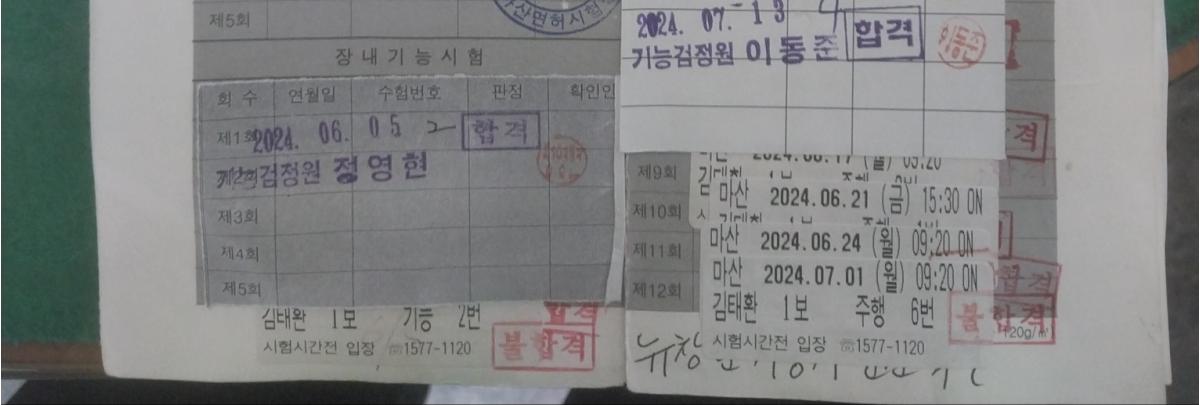 제5회
장내기능시험
회 수 연월일 수험번호 판정 확인인
제1회 2024. 06. 05 2 합격
기능검정원 정영현
제3회
제4회
제5회
김태환 1보 기능 2번
합격
시험시간전 입장 ☏1577-1120
불합격
2024. 07. 13
기능검정원 이동준 합격
이동준
격
제9회
제10회
마산 2024.06.21 (금) 15:30 ON
제11회
마산 2024.06.24 (월) 09:20 ON
제12회
마산 2024.07.01 (월) 09:20 ON
합격
김태환 1보 주행 6번
불합격
120g/㎡
시험시간전 입장 ☏1577-1120